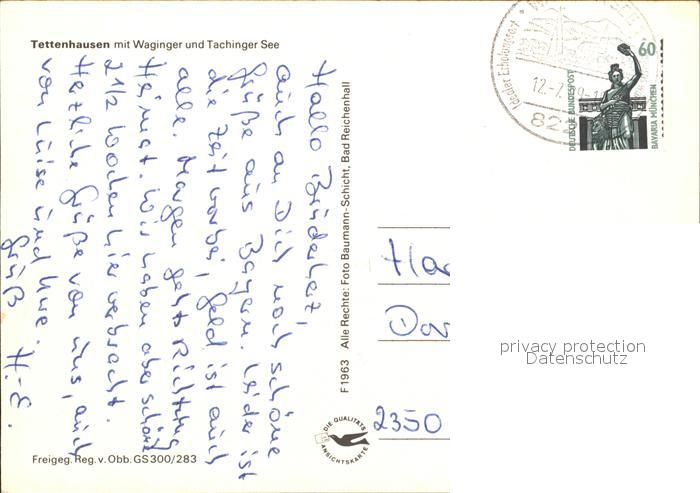 Tettenhausen mit Waginger und Tachinger See
Hallo Brüderherz,
auch an Dich noch schöne
Grüße aus Bayern. Leider ist
die Zeit vorbei, Geld ist auch
alle. Morgen geht Richtung
Heimat. Wir haben aber schöne
2 1/2 Wochen hier verbracht.
Herzliche Grüße von uns, auch
von Luise und Uwe.
Gruß H.-E.
Freigeg. Reg. v. Obb. GS 300/283
F1963 Alle Rechte: Foto Baumann-Schicht, Bad Reichenhall
DIE QUALITÄTS
ANSICHTSKARTE
Idealer Erholungsort
12.-7.
82
60
DEUTSCHE BUNDESPOST
BAVARIA MÜNCHEN
Ha
2350
privacy protection
Datenschutz